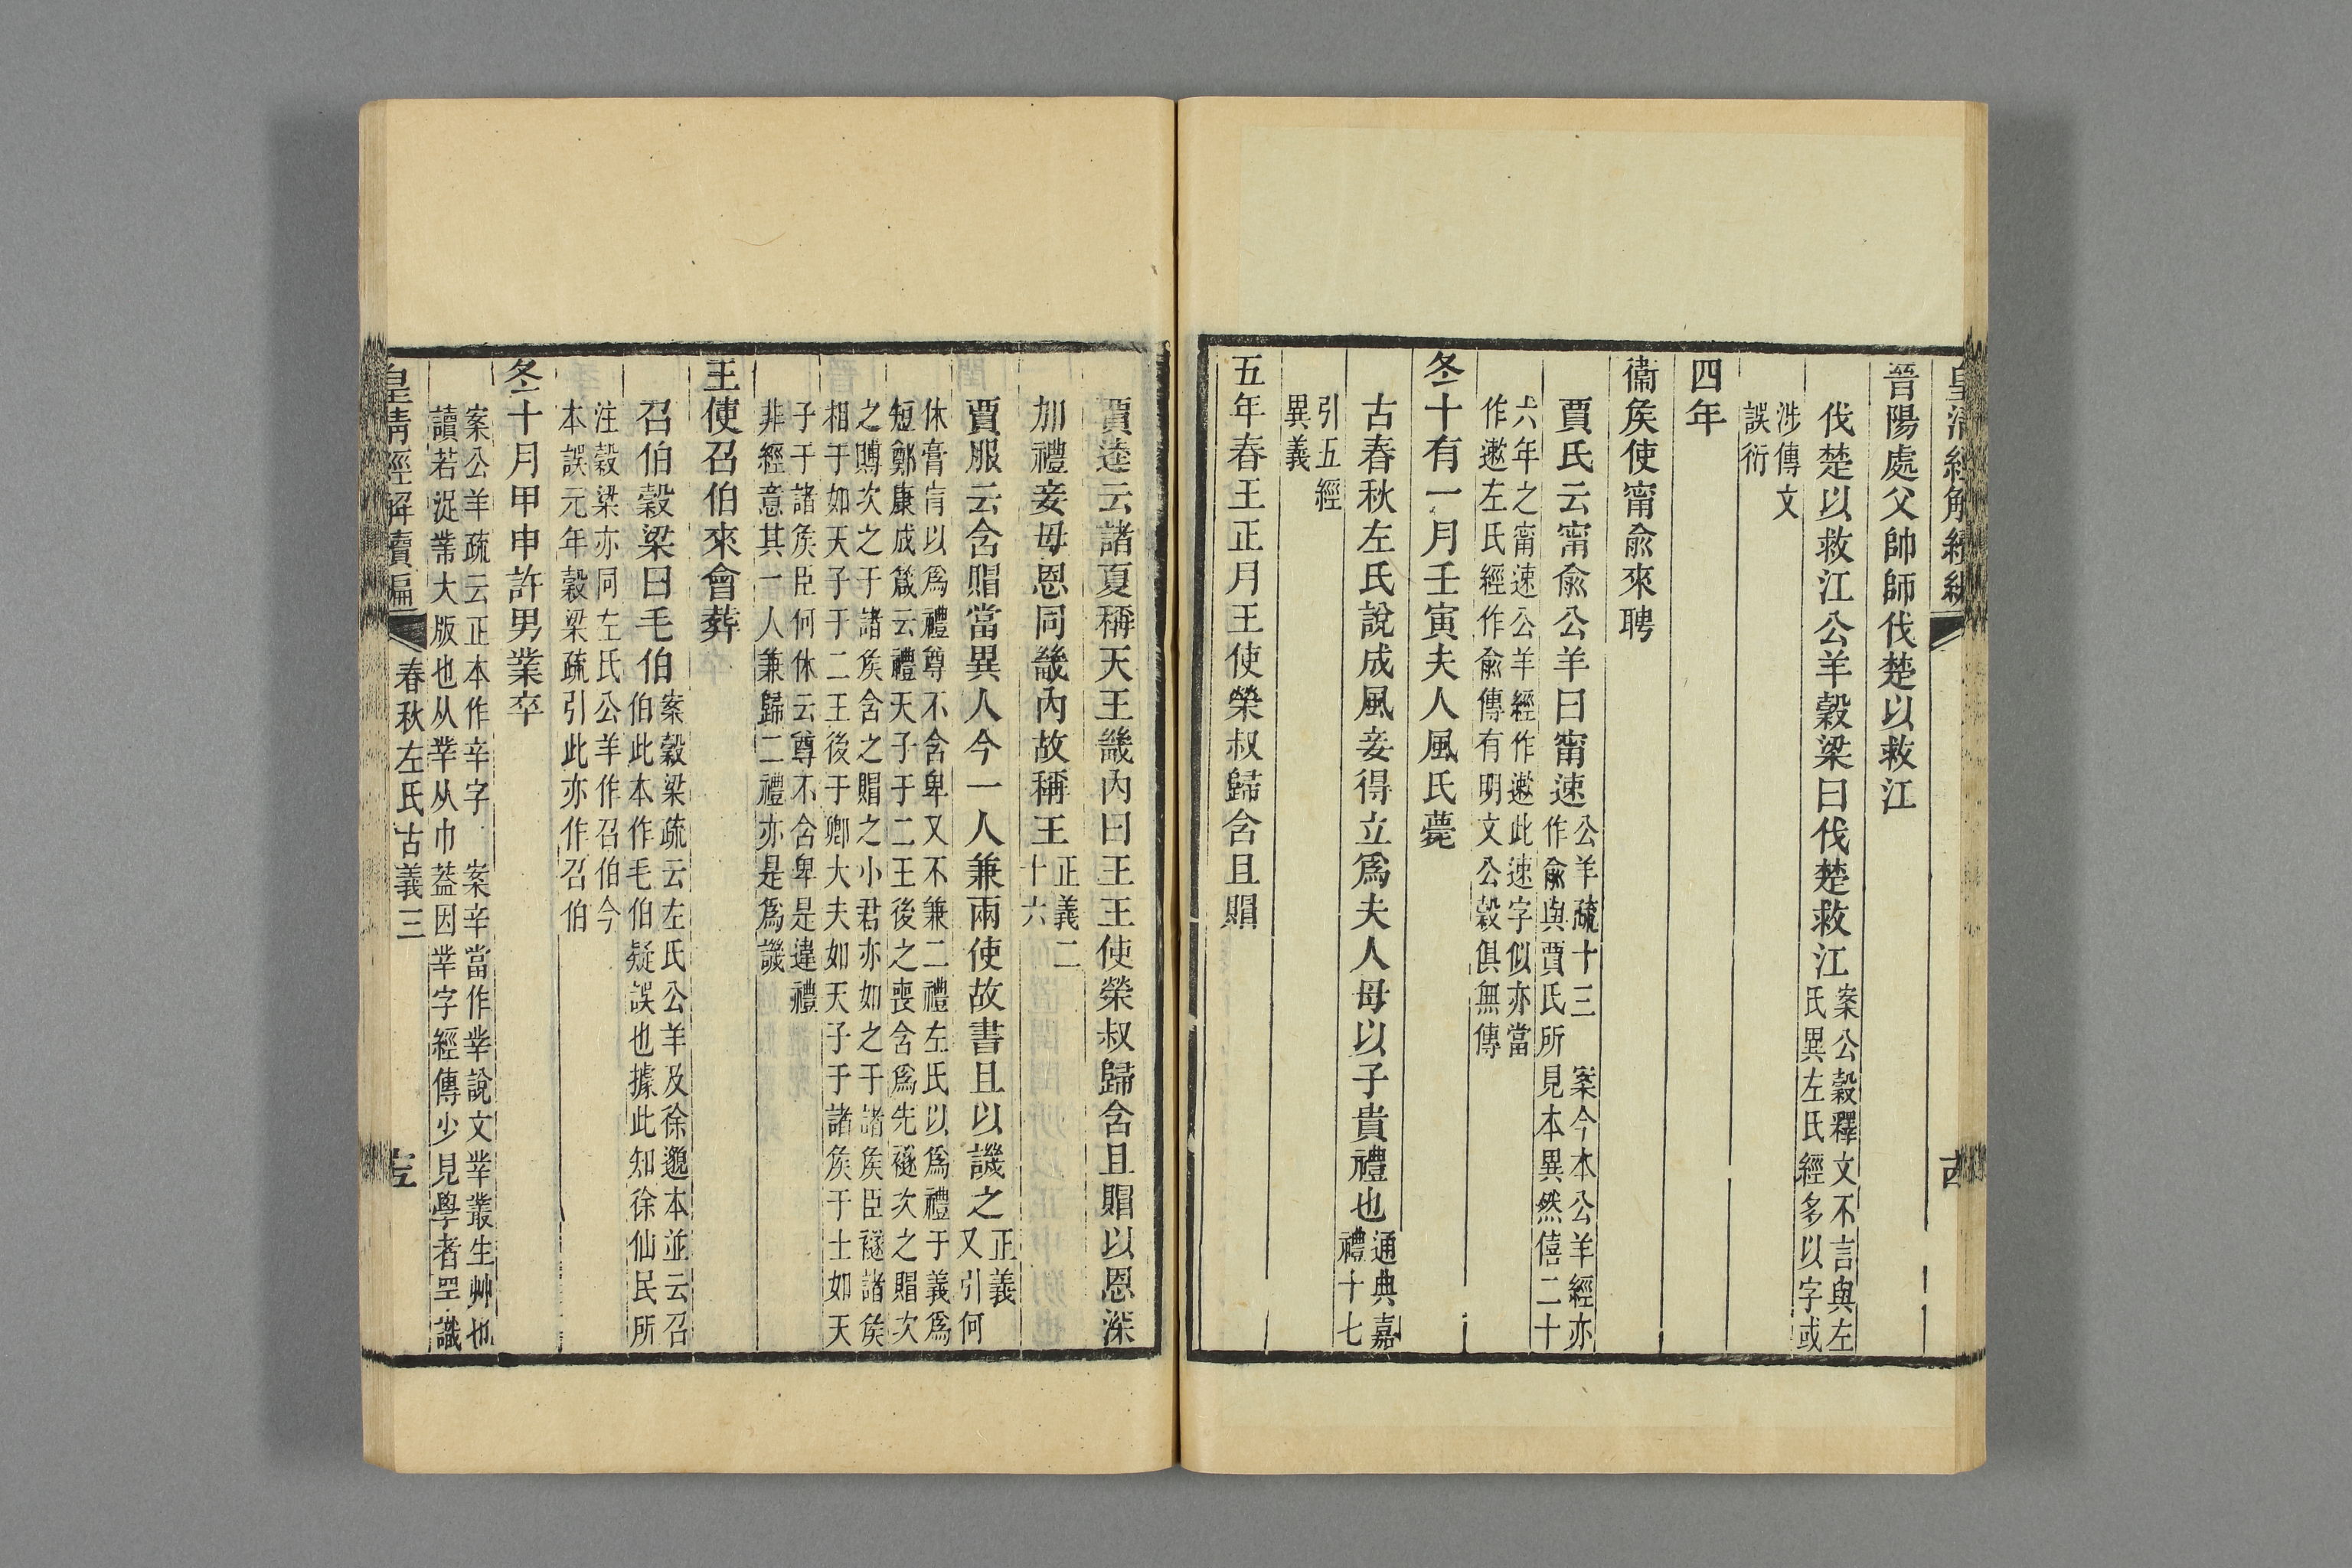 皇清經解續編
晉陽處父帥師伐楚以救江
伐楚以救江公羊穀梁曰伐楚救江
案公穀釋文不言與左
氏異左氏經多以字或
涉傳文
誤衍
四年
衞矦使甯兪來聘
賈氏云甯兪公羊曰甯速
公羊疏十三 案今本公羊經亦
作兪與賈氏所見本異然僖二十
六年之甯速公羊經作遬此速字似亦當
作遬左氏經作兪傳有明文公穀俱無傳
冬十有一月壬寅夫人風氏薨
古春秋左氏說成風妾得立爲夫人母以子貴禮也
通典嘉
禮十七
引五經
異義
五年春王正月王使榮叔歸含且賵
賈逵云諸夏稱天王畿內曰王王使榮叔歸含且賵以恩深
加禮妾母恩同畿內故稱王
正義二
十六
賈服云含賵當異人今一人兼兩使故書且以譏之
正義
又引何
休膏肓以爲禮尊不含卑又不兼二禮左氏以爲禮于義爲
短鄭康成箴云禮天子于二王後之喪含爲先襚次之賵次
之賻次之于諸矦含之賵之小君亦如之于諸矦臣襚諸矦
相于如天子于二王後于卿大夫如天子于諸矦于士如天
子于諸矦臣何休云尊不含卑是違禮
非經意其一人兼歸二禮亦是爲譏
王使召伯來會葬
召伯穀梁曰毛伯
案穀梁疏云左氏公羊及徐邈本並云召
伯此本作毛伯疑誤也據此知徐仙民所
注穀梁亦同左氏公羊作召伯今
本誤元年穀梁疏引此亦作召伯
冬十月甲申許男業卒
案公羊疏云正本作辛字 案辛當作丵說文丵叢生艸也
讀若浞業大版也从丵从巾葢因丵字經傳少見學者罕識
皇清經解續編
春秋左氏古義三